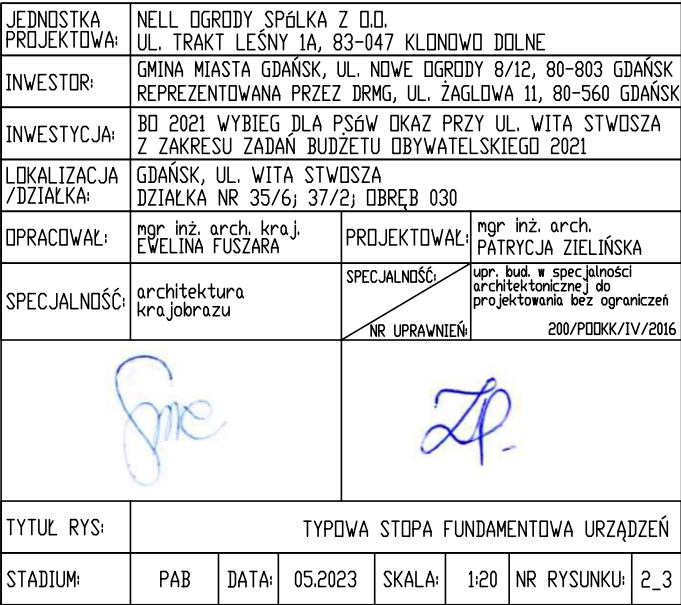 JEDNOSTKA PROJEKTOWA: NELL OGRODY SPóLKA Z O.O.
UL. TRAKT LEŚNY 1A, 83-047 KLONOWO DOLNE
INWESTOR: GMINA MIASTA GDAŃSK, UL. NOWE OGRODY 8/12, 80-803 GDAŃSK
REPREZENTOWANA PRZEZ DRMG, UL. ŻAGLOWA 11, 80-560 GDAŃSK
INWESTYCJA: BO 2021 WYBIEG DLA PSóW OKAZ PRZY UL. WITA STWOSZA
Z ZAKRESU ZADAŃ BUDŻETU OBYWATELSKIEGO 2021
LOKALIZACJA /DZIAŁKA: GDAŃSK, UL. WITA STWOSZA
DZIAŁKA NR 35/6; 37/2; OBRĘB 030
OPRACOWAŁ: mgr inż. arch. kraj.
EWELINA FUSZARA
PROJEKTOWAŁ: mgr inż. arch.
PATRYCJA ZIELIŃSKA
SPECJALNOŚĆ: architektura
krajobrazu
SPECJALNOŚĆ:
NR UPRAWNIEŃ:
upr. bud. w specjalności
architektonicznej do
projektowania bez ograniczeń
200/POOKK/IV/2016
TYTUŁ RYS: TYPOWA STOPA FUNDAMENTOWA URZĄDZEŃ
STADIUM: PAB DATA: 05.2023 SKALA: 1:20 NR RYSUNKU: 2_3